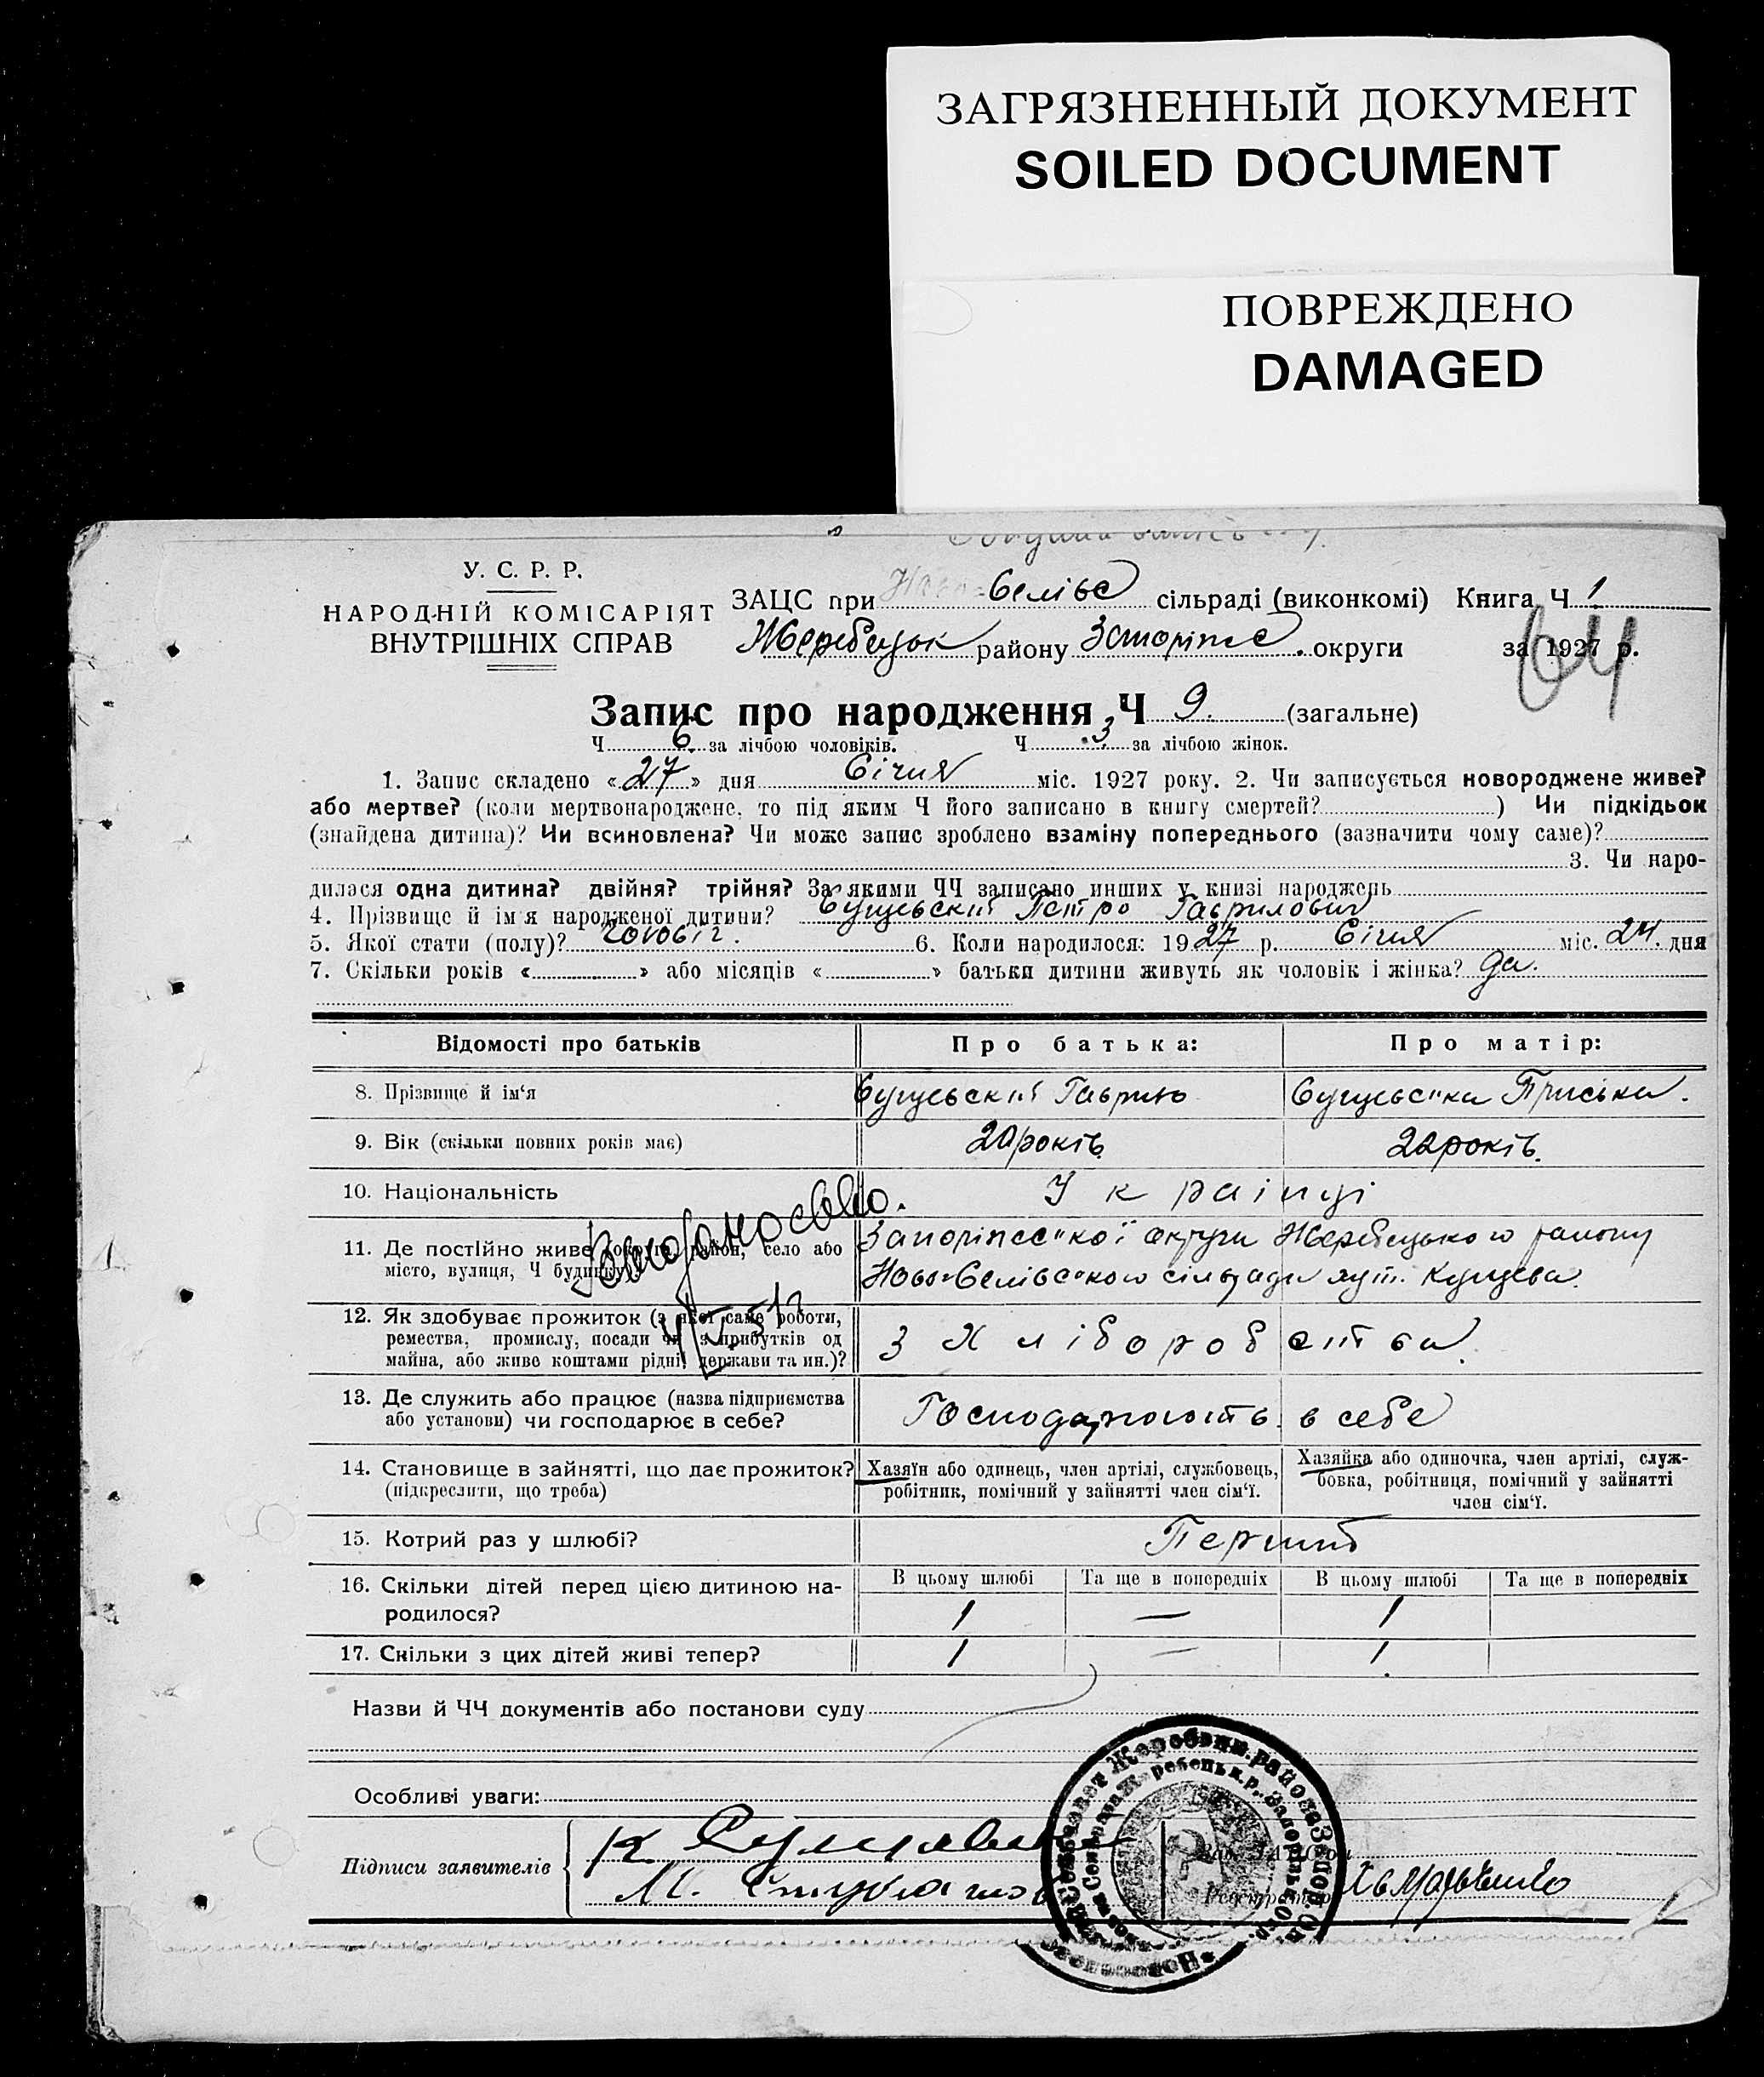 ЗАГРЯЗНЕННЫЙ ДОКУМЕНТ
SOILED DOCUMENT
ПОВРЕЖДЕНО
DAMAGED
У. С. Р. Р.
НАРОДНІЙ КОМІСАРІЯТ
ВНУТРІШНІХ СПРАВ
ЗАЦС при Ново-Селівс сільраді (виконкомі) Книга Ч 1
Жеребецьк району Запоріжс. округи за 1927 р.
64
Запис про народження Ч 9. (загальне)
Ч 6 за лічбою чоловіків. Ч 3 за лічбою жінок.
1. Запис складено «27» дня Січня міс. 1927 року. 2. Чи записується новороджене живе?
або мертве? (коли мертвонароджене, то під яким Ч його записано в книгу смертей? ) Чи підкідьок
(знайдена дитина)? Чи всиновлена? Чи може запис зроблено взаміну попереднього (зазначити чому саме)?
3. Чи наро-
дилася одна дитина? двійня? трійня? За якими ЧЧ записано инших у книзі народжень
4. Прізвище й ім'я народженої дитини? Сущевский Петро Гаврилович
5. Якої стати (полу)? чоловіч. 6. Коли народилося: 1927 р. Січня міс. 24. дня
7. Скільки років « » або місяців « » батьки дитини живуть як чоловік і жінка? да.
Відомості про батьків Про батька: Про матір:
8. Прізвище й ім'я Сущевский Гаврило Сущевська Приська.
9. Вік (скільки повних років має) 20 років 22 років.
10. Національність Українці
11. Де постійно живе (округа, район, село або Запоріжської округи Жеребецького району
місто, вулиця, Ч будинку)? Ново-Селівського сільради хут. Кущева.
12. Як здобуває прожиток (з якої саме роботи,
ремества, промислу, посади чи з прибутків од
майна, або живе коштами рідні, держави та ин.)? З Хліборобства.
13. Де служить або працює (назва підприємства
або установи) чи господарює в себе? Господарюють в себе
14. Становище в зайнятті, що дає прожиток? Хазяїн або одинець, член артілі, службовець, Хазяйка або одиночка, член артілі, служ-
(підкреслити, що треба) робітник, помічний у зайнятті член сім'ї. бовка, робітниця, помічний у зайнятті
член сім'ї.
15. Котрий раз у шлюбі? Перший
16. Скільки дітей перед цією дитиною на- В цьому шлюбі Та ще в попередніх В цьому шлюбі Та ще в попередніх
родилося? 1 — 1
17. Скільки з цих дітей живі тепер? 1 — 1.
Назви й ЧЧ документів або постанови суду
Особливі уваги:
Підписи заявителів